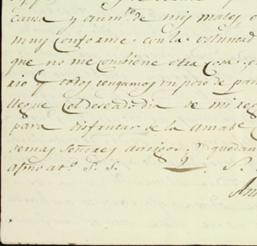 causa y aum.to de mis males, e
muy conforme con la voluntad
que no me combiene otra cosa: p
rio y todos tengamos un poco de pa
llegue el deseado dia de mi re
para disfrutar de la amab
demas Señores amigos, quedan
afmo at.o S. S. Q. S.